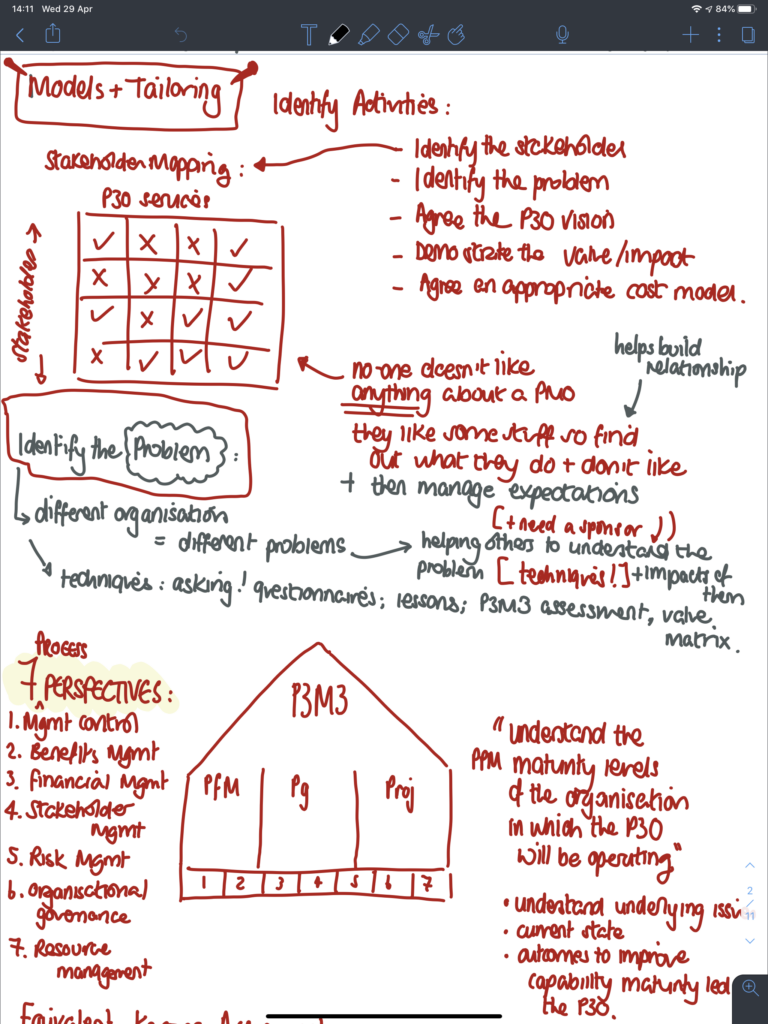 14:11 Wed 29 Apr
84%
Models + Tailoring
Identify Activities:
- Identify the stakeholder
- Identify the problem
- Agree the P3O vision
- Demostrate the value/impact
- Agree an appropriate cost model.
Stakeholder Mapping:
P3O services
Stakeholders
✓ x x ✓
x x x ✓
✓ x ✓ ✓
x ✓ ✓ ✓
no-one doesn't like
anything about a PMO
helps build
relationship
they like some stuff so find
out what they do + don't like
+ then manage expectations
Identify the Problem:
different organisation
= different problems
[+ need a sponsor])
helping others to understand the
problem [techniques!] + impacts of
them
techniques: asking! questionnaires; lessons; P3M3 assessment, value
matrix.
Process
7 PERSPECTIVES:
1. Mgmt control
2. Benefits Mgmt
3. Financial Mgmt
4. Stakeholder
Mgmt
5. Risk Mgmt
6. Organisational
governance
7. Resource
management
P3M3
PfM Pg Proj
1 2 3 4 5 6 7
"understand the
PPM maturity levels
of the organisation
in which the P3O
will be operating"
• understand underlying issu
• current state
• outcomes to improve
capability maturity led
the P3O.
2
11